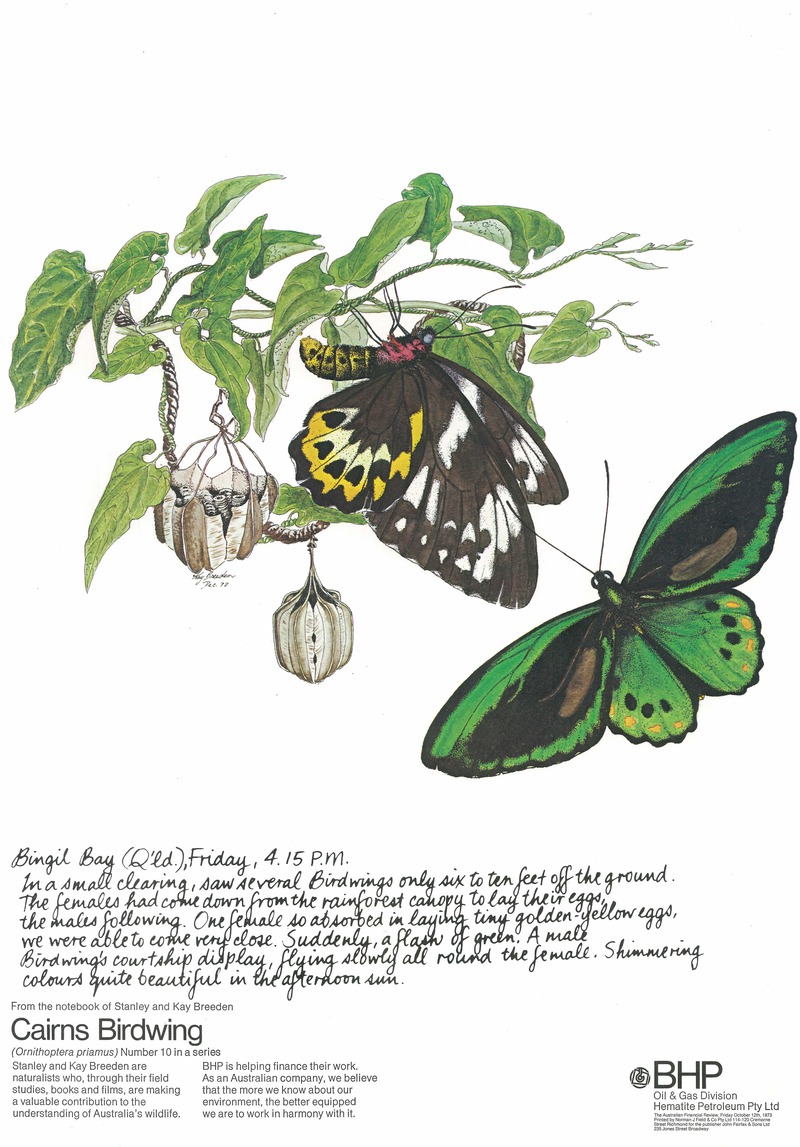 Kay Breeden
Dec. 72
Bingil Bay (Q'ld.), Friday, 4.15 P.M.
In a small clearing, saw several Birdwings only six to ten feet off the ground.
The females had come down from the rainforest canopy to lay their eggs,
the males following. One female so absorbed in laying tiny golden-yellow eggs,
we were able to come very close. Suddenly, a flash of green. A male
Birdwing's courtship display, flying slowly all round the female. Shimmering
colours quite beautiful in the afternoon sun.
From the notebook of Stanley and Kay Breeden
Cairns Birdwing
(Ornithoptera priamus) Number 10 in a series
Stanley and Kay Breeden are
naturalists who, through their field
studies, books and films, are making
a valuable contribution to the
understanding of Australia's wildlife.
BHP is helping finance their work.
As an Australian company, we believe
that the more we know about our
environment, the better equipped
we are to work in harmony with it.
BHP
Oil & Gas Division
Hematite Petroleum Pty Ltd
The Australian Financial Review, Friday October 12th, 1973
Printed by Norman J Field & Co Pty Ltd 114-120 Cremorne
Street Richmond for the publisher John Fairfax & Sons Ltd
235 Jones Street Broadway